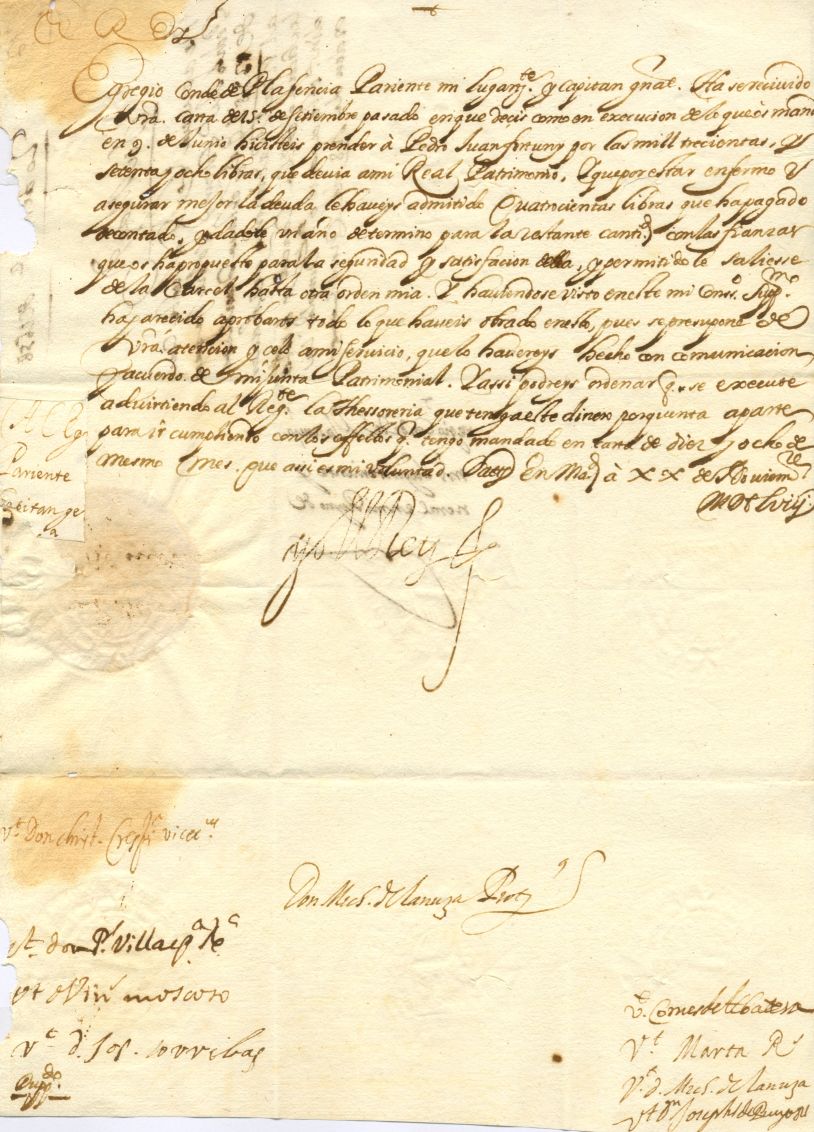 El Rey
Egregio Conde de Plasencia Pariente mi lugarte. y capitan gnal. Ha se reciuido
vra. carta de 15. de setiembre pasado en que decis como en execucion de lo que os mandé
en 9. de Junio hicisteis prender à Pedro Juan fortuny por las mill trecientas, y
setenta y ocho libras, que deuia a mi Real Patrimonio, Y que por estar enfermo y
asegurar mejor la deuda le haueys admitido quatrocientas libras que ha pagado
de contado, y dadole un año de termino para la restante cantd. con las fianzas
que os ha propuesto para la seguridad y satisfacion della, y permitidole saliesse
de la Carcel hasta otra orden mia. Y hauiendose visto en este mi Conso. Supmo.
ha parecido aprobaros todo lo que haueis obrado en esto, pues se presupone de
vra. atencion y celo a mi seruicio, que lo haureys hecho con comunicacion
y acuerdo de mi junta Patrimonial. Y assi podreys ordenar q. se execute
aduirtiendo al Regte. la Thessoreria que tenga este dinero por quenta aparte
para ir cumpliendo con los effetos q. tengo mandado en carta de diez y ocho de
mesmo mes, que assi es mi voluntad. Datt. en Md. à XX de Nouiemre.
MDCLviij.
Al Eg
Pariente
capitan ge
yo el Rey
Vt. Don Christ. Crespi. vicecn.
Don Mich. de lanuza Prots.
Vt. don P. Villacpa. Re.
Vt. moscoso
Vt. d. Jos. torribas
Vt. Comes de Albatera
Vt. Marta R.
Vt. d. Mich. de lanuza
Vt. Dn. Joseph de